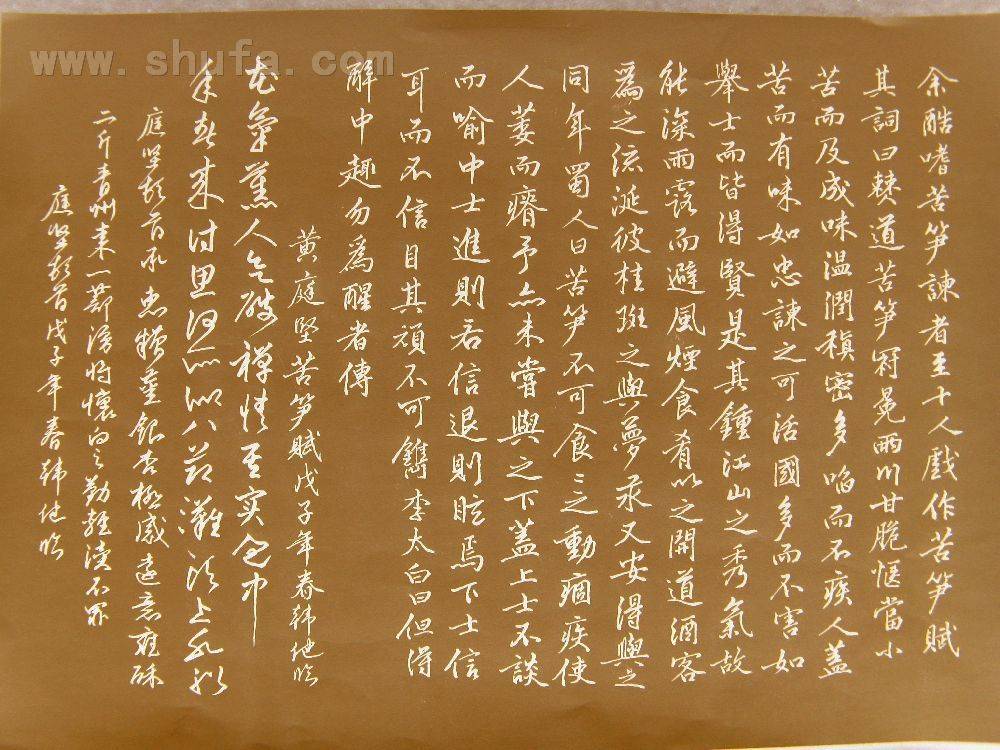 www.shufa.com
余酷嗜苦笋諫者至十人戲作苦笋賦
其詞曰僰道苦笋冠冕兩川甘脆愜當小
苦而及成味温潤稹密多啗而不疾人蓋
苦而有味如忠諫之可活國多而不害如
舉士而皆得賢是其鍾江山之秀氣故
能深雨露而避風煙食肴以之開道酒客
爲之流涎彼桂斑之與夢汞又安得與之
同年蜀人曰苦笋不可食食之動痼疾使
人萎而瘠予亦未嘗與之下蓋上士不談
而喻中士進則若信退則眩焉下士信
耳而不信目其頑不可鐫李太白曰但得
醉中趣勿爲醒者傳
黄庭堅苦笋賦戊子年春韩地临
花氣薰人欲破禪心情其实过中
年春来诗思何所似八节灘头上水船
庭坚顿首承惠糟姜银杏极感远意雍酥
二斤青州枣一蔀漫将怀向之勤轻渎不罪
庭坚顿首戊子年春韩地临